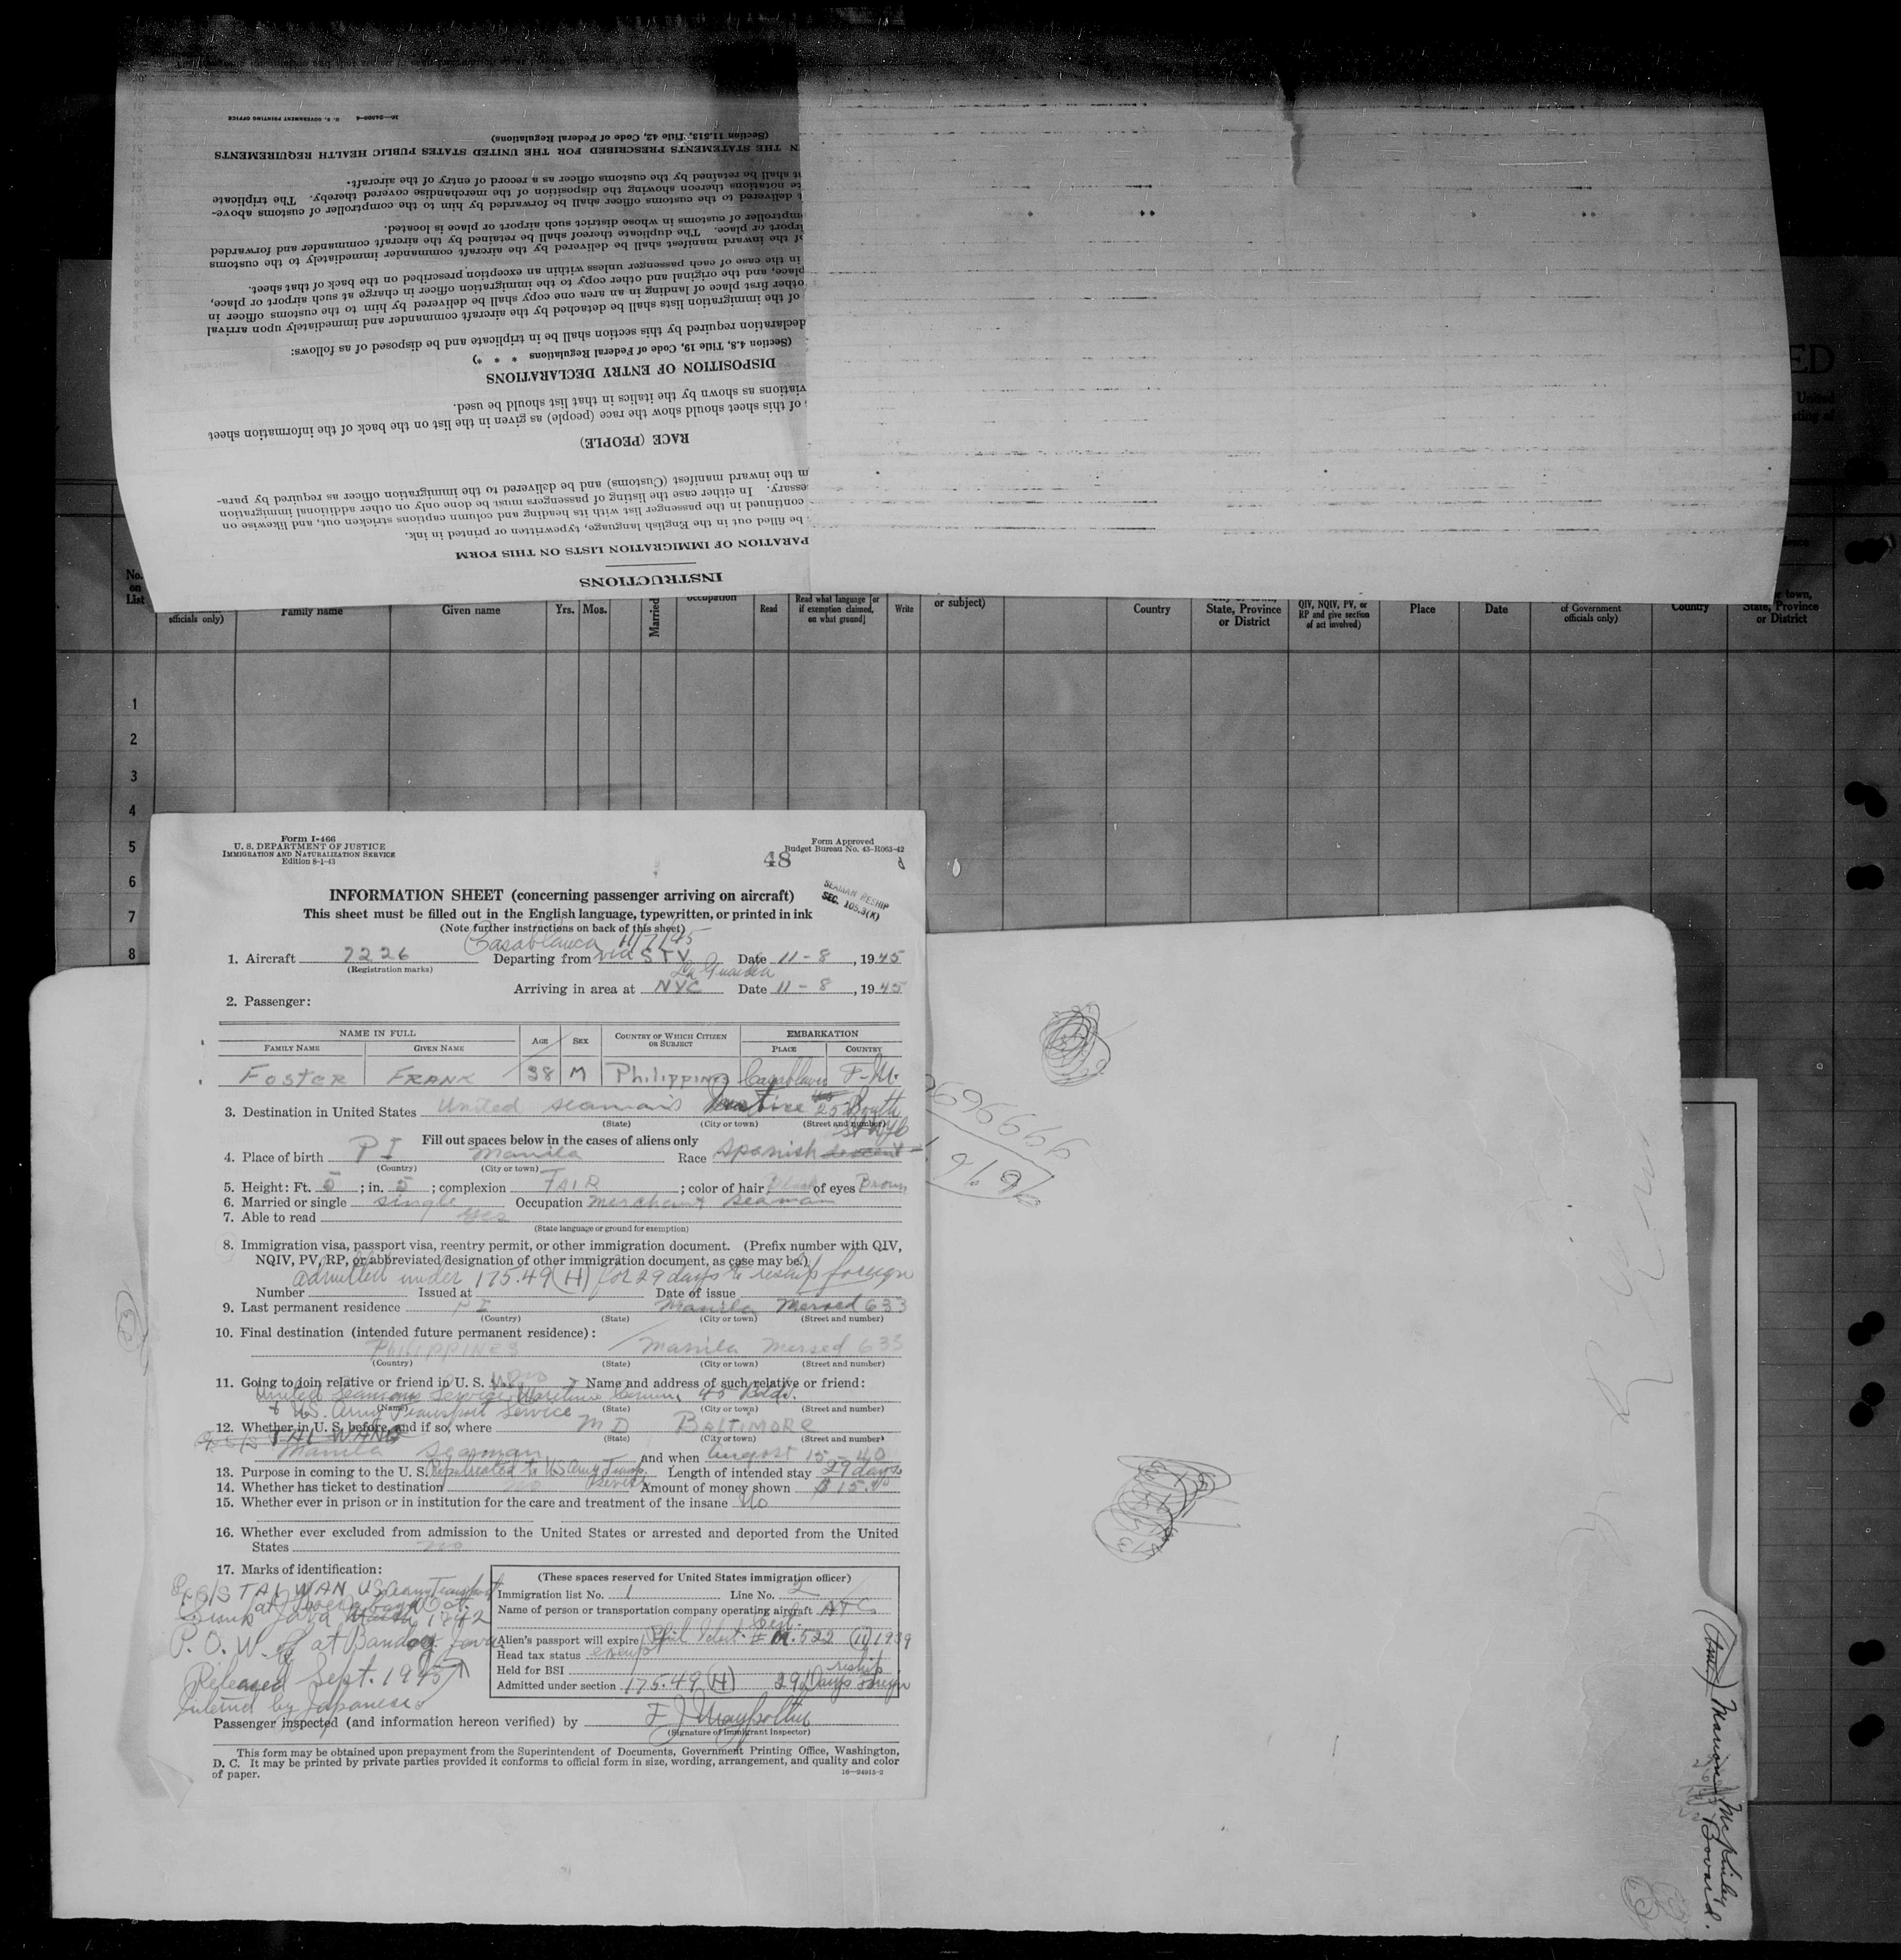 16—24900-4 U. S. GOVERNMENT PRINTING OFFICE
(Section 11.513, Title 42, Code of Federal Regulations)
N THE STATEMENTS PRESCRIBED FOR THE UNITED STATES PUBLIC HEALTH REQUIREMENTS
t shall be retained by the customs officer as a record of entry of the aircraft.
te notations thereon showing the disposition of the merchandise covered thereby. The triplicate
t delivered to the customs officer shall be forwarded by him to the comptroller of customs above-
mptroller of customs in whose district such airport or place is located.
irport or place. The duplicate thereof shall be retained by the aircraft commander and forwarded
of the inward manifest shall be delivered by the aircraft commander immediately to the customs
in the case of each passenger unless within an exception prescribed on the back of that sheet.
place, and the original and other copy to the immigration officer in charge at such airport or place,
other first place of landing in an area one copy shall be delivered by him to the customs officer in
of the immigration lists shall be detached by the aircraft commander and immediately upon arrival
declaration required by this section shall be in triplicate and be disposed of as follows:
(Section 4.8, Title 19, Code of Federal Regulations * * *)
DISPOSITION OF ENTRY DECLARATIONS
viations as shown by the italics in that list should be used.
of this sheet should show the race (people) as given in the list on the back of the information sheet
RACE (PEOPLE)
m the inward manifest (Customs) and be delivered to the immigration officer as required by para-
essary. In either case the listing of passengers must be done only on other additional immigration
continued in the passenger list with its heading and column captions stricken out, and likewise on
be filled out in the English language, typewritten or printed in ink.
PARATION OF IMMIGRATION LISTS ON THIS FORM
INSTRUCTIONS
ED
United
No. on List
officials only)
Family name
Given name
Yrs.
Mos.
Married
occupation
Read
Read what language [or if exemption claimed, on what ground]
Write
or subject)
Country
State, Province or District
QIV, NQIV, PV, or RP and give section of act involved)
Place
Date
of Government officials only)
Country
State, Province or District
1
2
3
4
5
6
7
8
Form I-466
U. S. DEPARTMENT OF JUSTICE
IMMIGRATION AND NATURALIZATION SERVICE
Edition 8-1-43
Form Approved
Budget Bureau No. 43-R063-42
48
SEAMAN RESHIP
SEC. 105.3(K)
INFORMATION SHEET (concerning passenger arriving on aircraft)
This sheet must be filled out in the English language, typewritten, or printed in ink
(Note further instructions on back of this sheet)
Casablanca 11/7/45
1. Aircraft 7226 Departing from via STV Date 11-8, 1945
(Registration marks)
La Guardia
Arriving in area at NYC Date 11-8, 1945
2. Passenger:
NAME IN FULL AGE SEX COUNTRY OF WHICH CITIZEN OR SUBJECT EMBARKATION
FAMILY NAME GIVEN NAME PLACE COUNTRY
FOSTER FRANK 38 M Philippines Casablanca F-M.
3. Destination in United States United seaman's Service 25 South
(State) (City or town) (Street and number)
St NYC
Fill out spaces below in the cases of aliens only
4. Place of birth P I Manila Race Spanish
(Country) (City or town)
5. Height: Ft. 5; in. 5; complexion FAIR; color of hair Black of eyes Brown
6. Married or single single Occupation merchant seaman
7. Able to read yes
(State language or ground for exemption)
8. Immigration visa, passport visa, reentry permit, or other immigration document. (Prefix number with QIV,
NQIV, PV, RP, or abbreviated designation of other immigration document, as case may be.)
admitted under 175.49(H) for 29 days to reship foreign
Number Issued at Date of issue
9. Last permanent residence P I Manila Mersed 633
(Country) (State) (City or town) (Street and number)
10. Final destination (intended future permanent residence):
PHILIPPINES Manila Mersed 633
(Country) (State) (City or town) (Street and number)
11. Going to join relative or friend in U. S. no Name and address of such relative or friend:
United Seamans Service, Maritime 45 Bldg.
(Name) (State) (City or town) (Street and number)
& U.S. Army Transport Service
12. Whether in U. S. before, and if so, where MD BALTIMORE
(State) (City or town) (Street and number)
S/S TAI WAN
Manila seaman and when August 15 40
13. Purpose in coming to the U. S. Repatriated to US Army Trans. Service Length of intended stay 29 days
14. Whether has ticket to destination no Amount of money shown $15.00
15. Whether ever in prison or in institution for the care and treatment of the insane No
16. Whether ever excluded from admission to the United States or arrested and deported from the United
States no
17. Marks of identification:
Ex S/S TAI WAN US Army Transport
at
Sunk Java 1942
P.O.W. at Bandog Java.
Released Sept. 1945
Interned by Japanese
(These spaces reserved for United States immigration officer)
Immigration list No. 1 Line No. 2
Name of person or transportation company operating aircraft ATC
Alien's passport will expire M.522 (11) 1939
Head tax status exempt
Held for BSI
Admitted under section 175.49(H) 29 Days reship foreign
Passenger inspected (and information hereon verified) by
(Signature of immigrant inspector)
This form may be obtained upon prepayment from the Superintendent of Documents, Government Printing Office, Washington,
D. C. It may be printed by private parties provided it conforms to official form in size, wording, arrangement, and quality and color
of paper.
16—24915-2